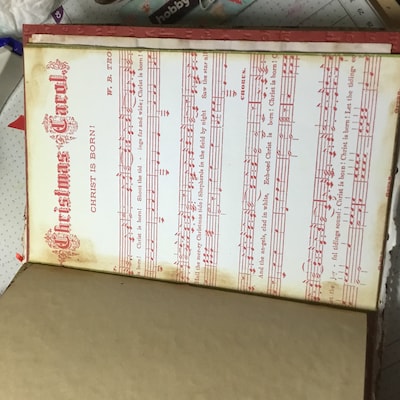 hobby
Christmas Carol.
CHRIST IS BORN!
W. B. TRO
is born! Christ is born!- Shout the tid - ings far and wide; Christ is born!
And the mer-ry Christmas tide! Shepherds in the field by night Saw the star
CHORUS.
And the angels, clad in white. Echoed Christ is born! Christ is born! C
ful tidings sound; Christ is born! Christ is born! Let the tidings